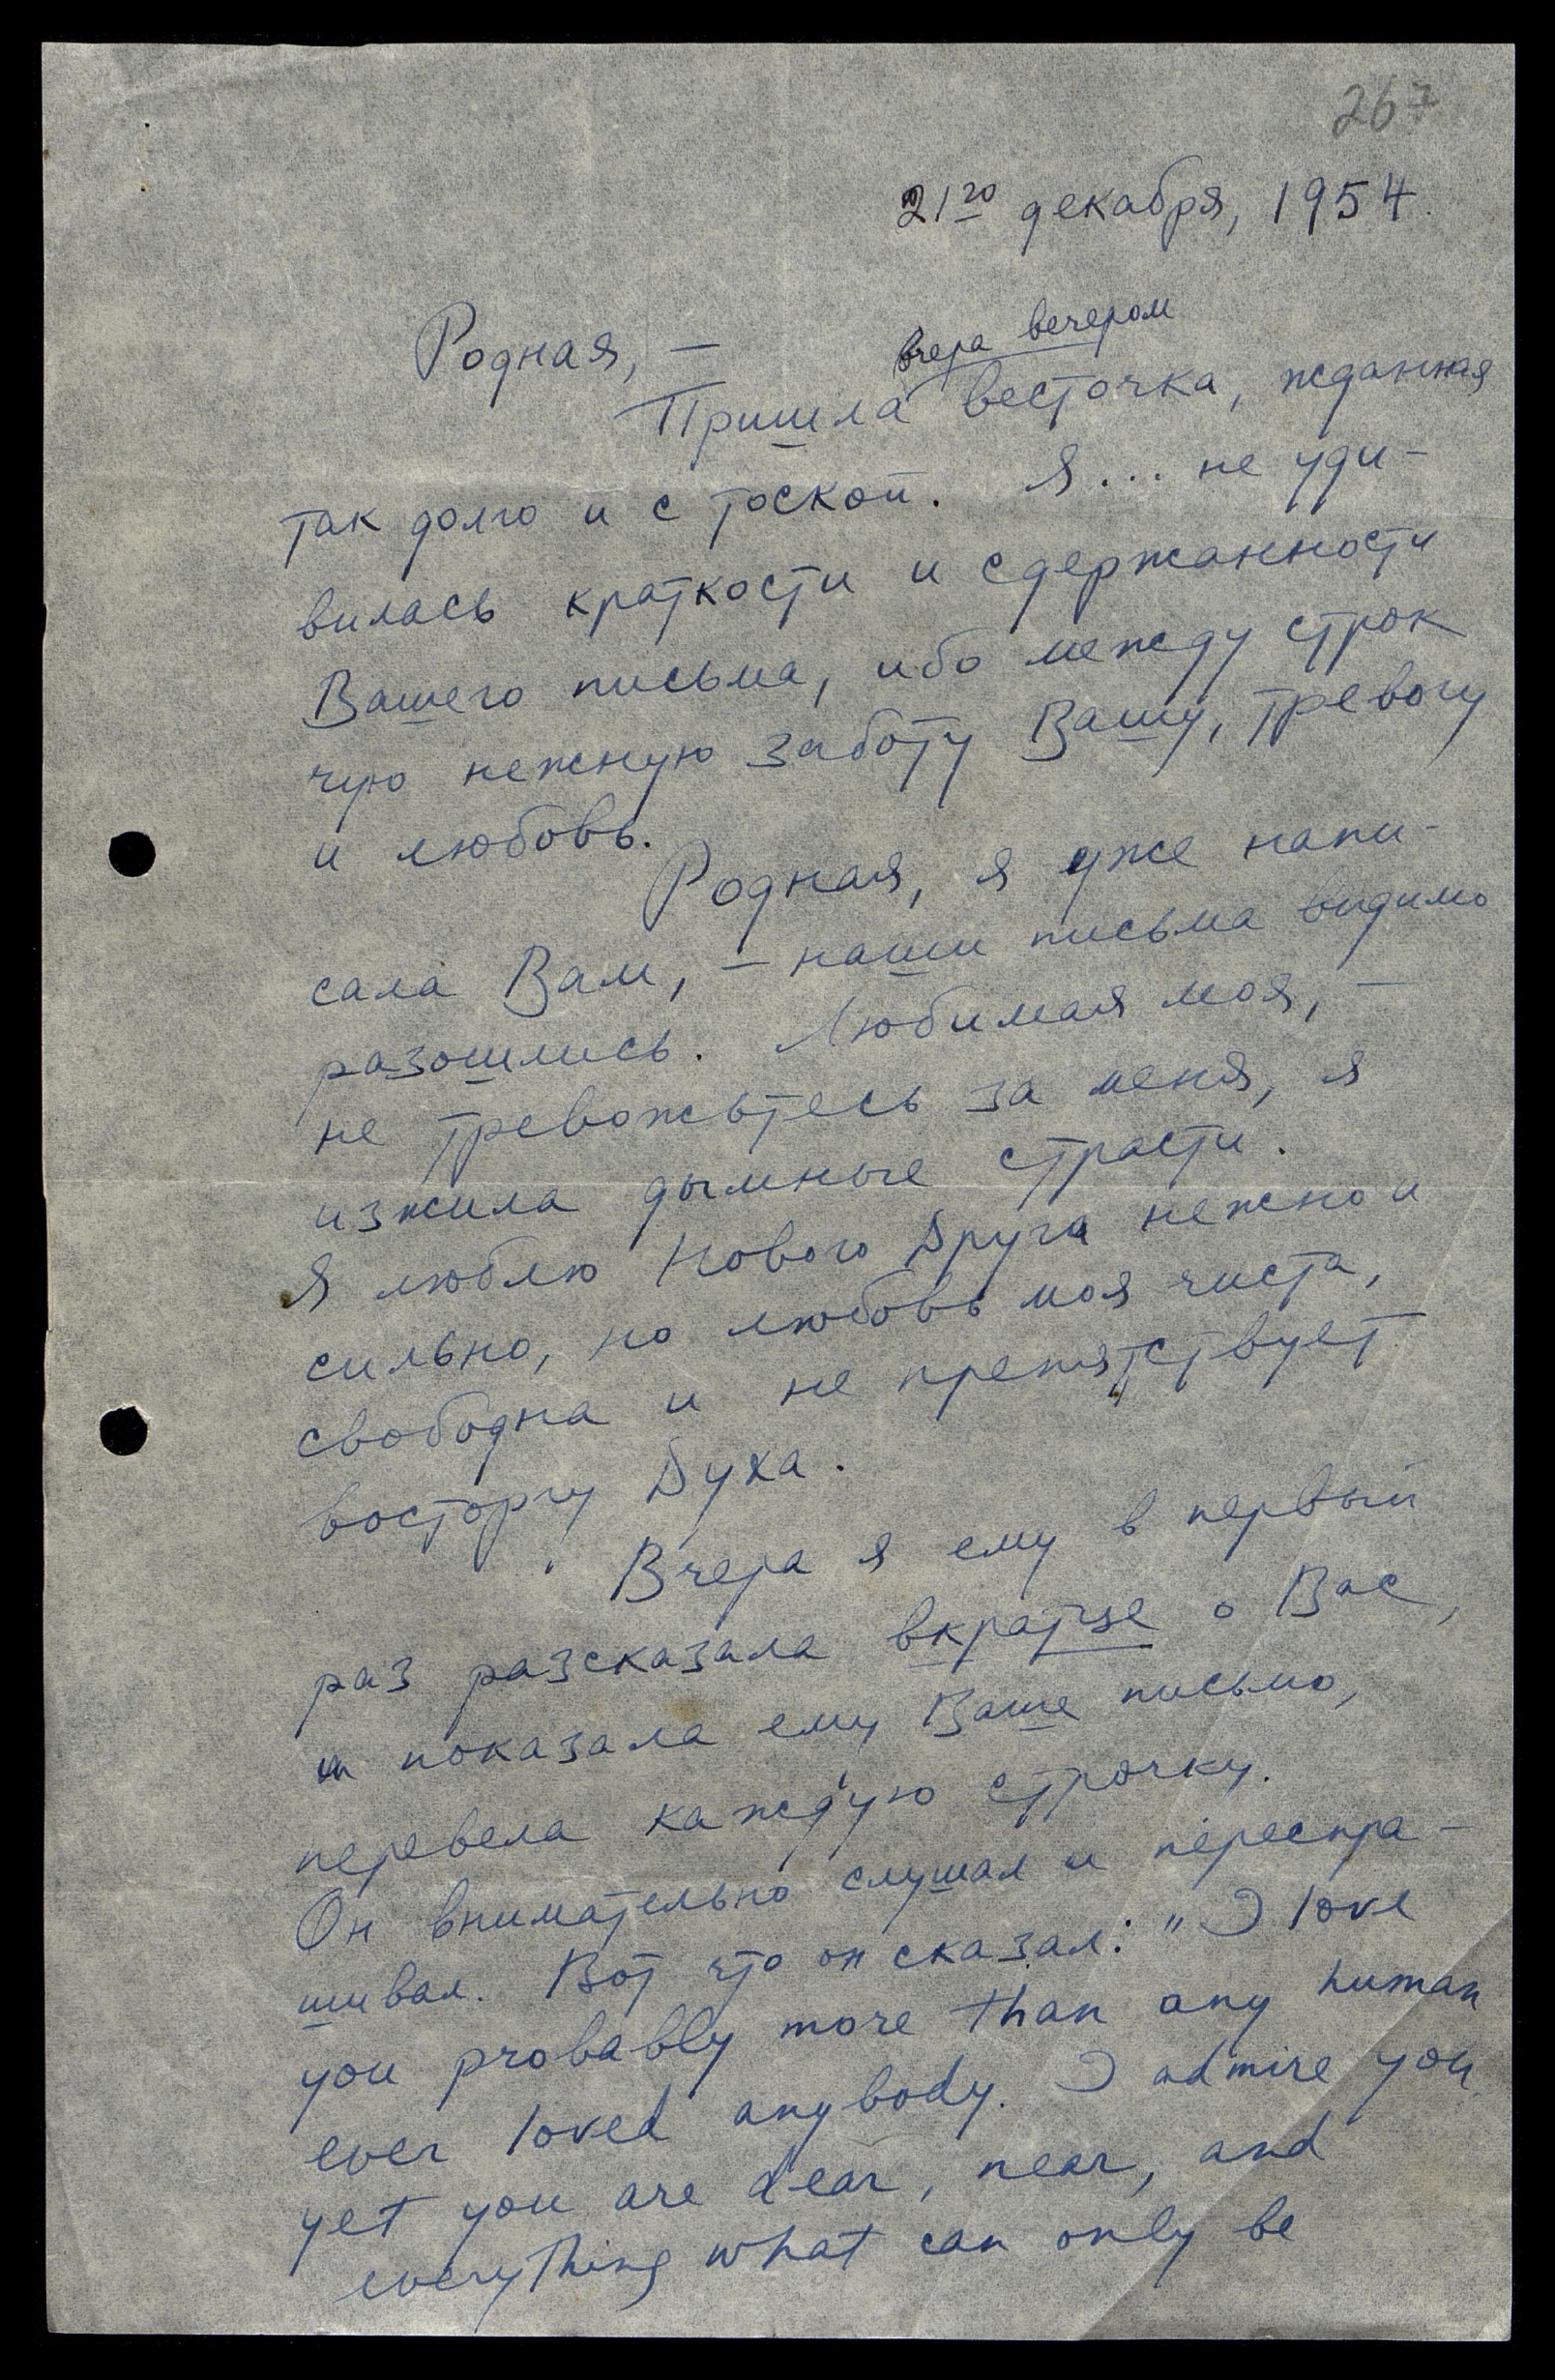 267
21го декабря, 1954.
Родная, —
вчера вечером
Пришла весточка, жданная
так долго и с тоской. Я... не уди-
вилась краткости и сдержанности
Вашего письма, ибо между строк
чую нежную заботу Вашу, тревогу
и любовь.
Родная, я уже напи-
сала Вам, — наши письма видимо
разошлись. Любимая моя, —
не тревожьтесь за меня, я
изжила дымные страсти.
Я люблю Нового Друга нежно и
сильно, но любовь моя чиста,
свободна и не препятствует
восторгу Духа.
Вчера я ему в первый
раз разсказала вкратце о Вас,
и показала ему Ваше письмо,
перевела каждую строчку.
Он внимательно слушал и переспра-
шивал. Вот что он сказал: "I love
you probably more than any human
ever loved anybody. I admire you,
yet you are dear, near, and
everything what can only be